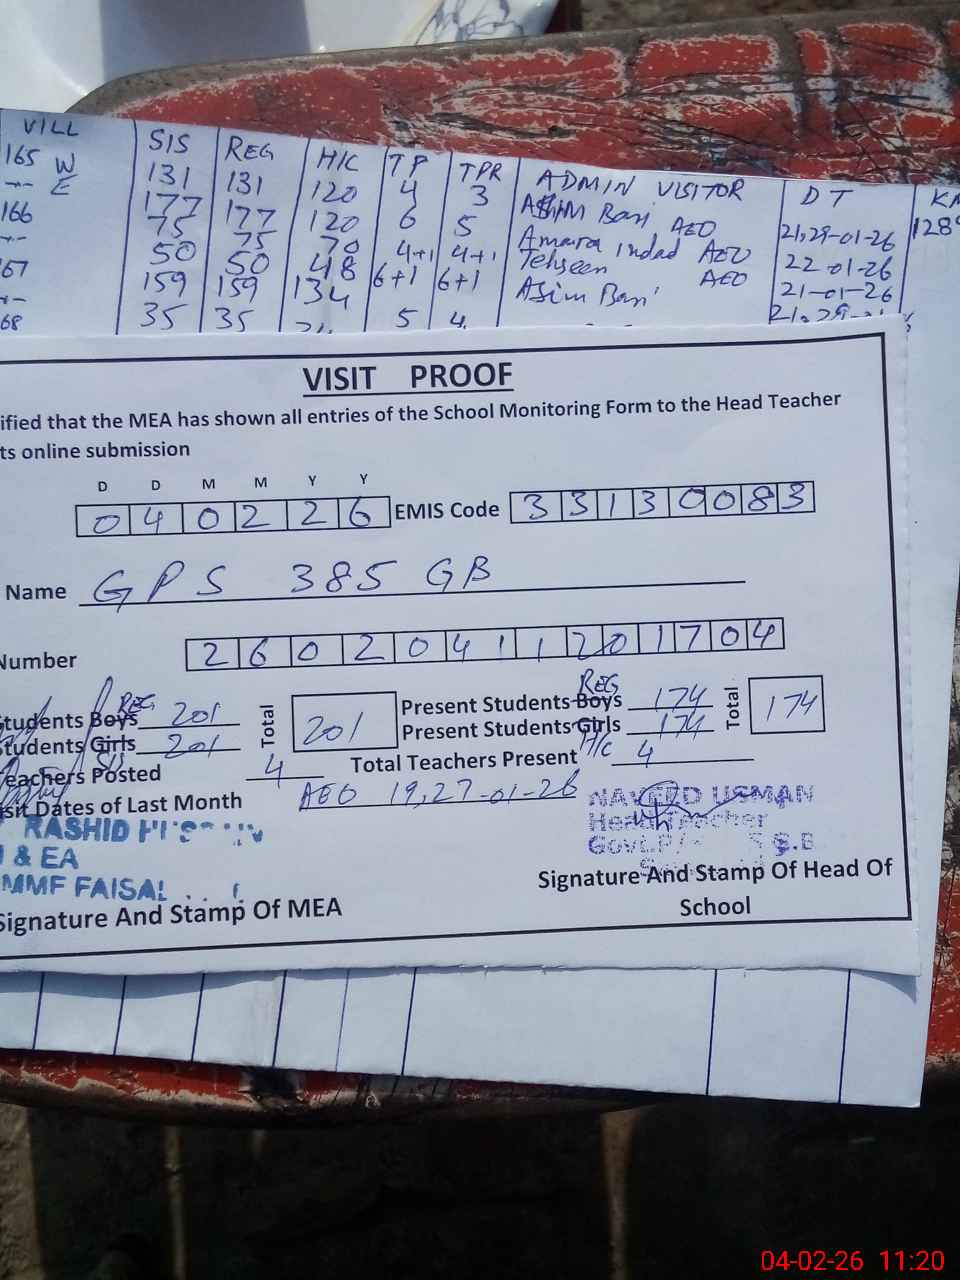 VILL SIS REG H/C TP TPR ADMIN VISITOR DT KM
165 W 131 131 120 4 3 Asim Bari AEO 21,29-01-26 128
-"- E 177 177 120 6 5 Amara Imdad AEO 22-01-26
166 75 75 70 4+1 4+1 Tehseen AEO 21-01-26
-"- 50 50 48 6+1 6+1 Asim Bari 21,29
67 159 159 134 5 4
-"- 35 35
68
VISIT PROOF
ified that the MEA has shown all entries of the School Monitoring Form to the Head Teacher
ts online submission
D D M M Y Y
0 4 0 2 2 6 EMIS Code 3 3 1 3 0 0 8 3
Name GPS 385 GB
Number 2 6 0 2 0 4 1 1 2 0 1 7 0 4
REG REG
tudents Boys 201 Total 201 Present Students Boys 174 Total 174
tudents Girls 201 Present Students Girls 174
SIS H/C
eachers Posted 4 Total Teachers Present 4
sit Dates of Last Month AEO 19,27-01-26
RASHID
NAVEED USMAN
Head Teacher
& EA
Govt.P/ S G.B
MMF FAISAL
Signature And Stamp Of MEA
Signature And Stamp Of Head Of
School
04-02-26 11:20